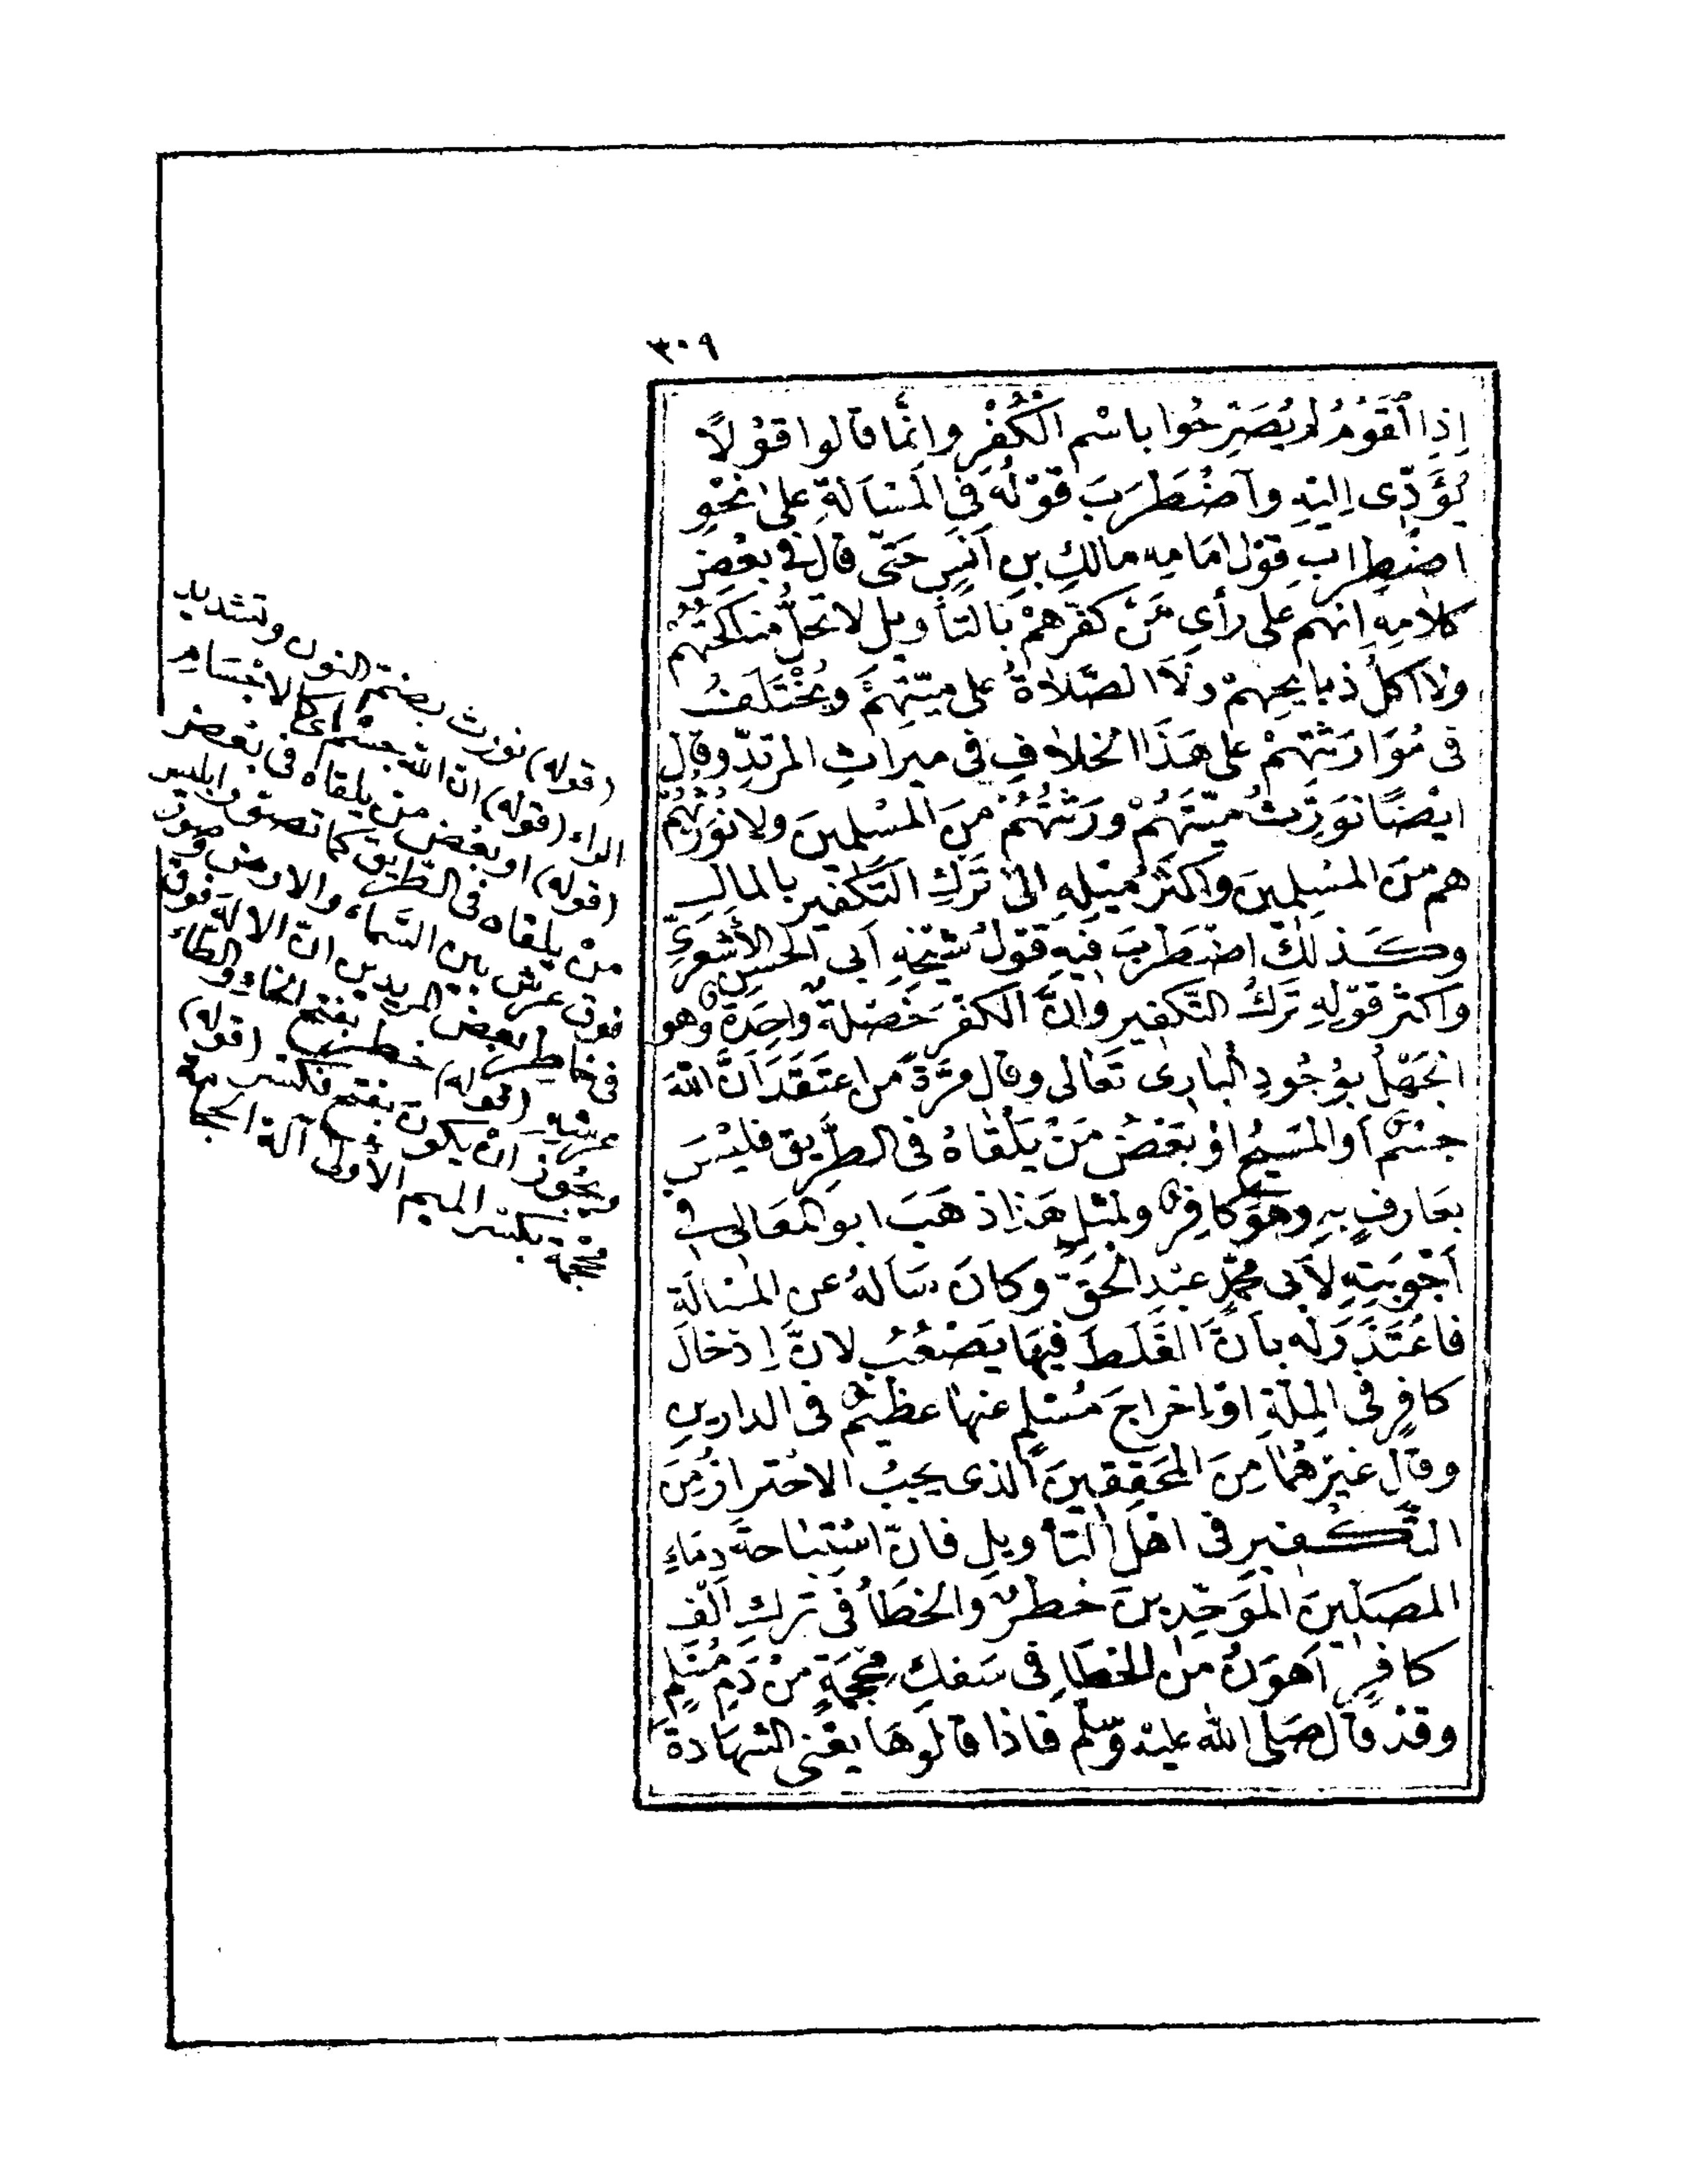 ٣٠٩
إِذِ الْقَوْمُ لَمْ يُصَرِّحُوا بِاسْمِ الْكُفْرِ وَإِنَّمَا قَالُوا قَوْلًا
يُؤَدِّى إِلَيْهِ وَاضْطَرَبَ قَوْلُهُ فِي الْمَسْأَلَةِ عَلَى نَحْوِ
اضْطِرَابِ قَوْلِ إِمَامِهِ مَالِكِ بْنِ أَنَسٍ حَتَّى قَالَ فِي بَعْضِ
كَلَامِهِ إِنَّهُمْ عَلَى رَأْىِ مَنْ كَفَّرَهُمْ بِالتَّأْوِيلِ لَا تَحِلُّ مُنَاكَحَتُهُمْ
وَلَا أَكْلُ ذَبَايِحِهِمْ وَلَا الصَّلَاةُ عَلَى مَيِّتِهِمْ وَيُخْتَلَفُ
فِى مُوَارَثَتِهِمْ عَلَى هَذَا الْخِلَافِ فِى مِيرَاثِ الْمُرْتَدِّ وَقَالَ
أَيْضًا نُوَرِّثُ مَيِّتَهُمْ وَرَثَتَهُمْ مِنَ الْمُسْلِمِينَ وَلَا نُوَرِّثُهُمْ
هُمْ مِنَ الْمُسْلِمِينَ وَأَكْثَرُ مَيْلِهِ إِلَى تَرْكِ التَّكْفِيرِ بِالْمَآلِ
وَكَذَلِكَ اضْطَرَبَ فِيهِ قَوْلُ شَيْخِهِ أَبِى الْحَسَنِ الْأَشْعَرِىِّ
وَأَكْثَرُ قَوْلِهِ تَرْكُ التَّكْفِيرِ وَأَنَّ الْكُفْرَ خَصْلَةٌ وَاحِدَةٌ وَهُوَ
الْجَهْلُ بِوُجُودِ الْبَارِى تَعَالَى وَقَالَ مَرَّةً مَنِ اعْتَقَدَ أَنَّ اللَّهَ
جِسْمٌ أَوِ الْمَسِيحُ أَوْ بَعْضُ مَنْ يَلْقَاهُ فِى الطَّرِيقِ فَلَيْسَ
بِعَارِفٍ بِهِ وَهُوَ كَافِرٌ وَلِمِثْلِ هَذَا ذَهَبَ أَبُو الْمَعَالِى فِى
أَجْوِبَتِهِ لِأَبِى مُحَمَّدٍ عَبْدِ الْحَقِّ وَكَانَ سَأَلَهُ عَنِ الْمَسْأَلَةِ
فَاعْتَذَرَ لَهُ بِأَنَّ الْغَلَطَ فِيهَا يَصْعُبُ لِأَنَّ إِدْخَالَ
كَافِرٍ فِى الْمِلَّةِ أَوْ إِخْرَاجَ مُسْلِمٍ عَنْهَا عَظِيمٌ فِى الدَّارَيْنِ
وَقَالَ غَيْرُهُمَا مِنَ الْمُحَقِّقِينَ الَّذِى يَجِبُ الِاحْتِرَازُ مِنَ
التَّكْفِيرِ فِى أَهْلِ التَّأْوِيلِ فَإِنَّ اسْتِبَاحَةَ دِمَاءِ
الْمُصَلِّينَ الْمُوَحِّدِينَ خَطَرٌ وَالْخَطَأُ فِى تَرْكِ أَلْفِ
كَافِرٍ أَهْوَنُ مِنَ الْخَطَإِ فِى سَفْكِ مِحْجَمَةٍ مِنْ دَمِ مُسْلِمٍ
وَقَدْ قَالَ صَلَّى اللَّهُ عَلَيْهِ وَسَلَّمَ فَإِذَا قَالُوهَا يَعْنِى الشَّهَادَةَ
(قوله) نورث بضم النون وتشديد
الراء (قوله) ان الله جسم اى كالاجسام
(قوله) او بعض من يلقاه فى بعض
من يلقاه فى الطريق كما تصور ابليس
فوق عرش بين السماء والارض وصور
فى خاطر بعض المريدين ان الاله فوق
عرشه (قوله) خطر بفتح الخاء والطاء
ويجوز ان يكون بفتح فكسر (قوله)
محجمة بكسر الميم الأولى آلة الحجامة